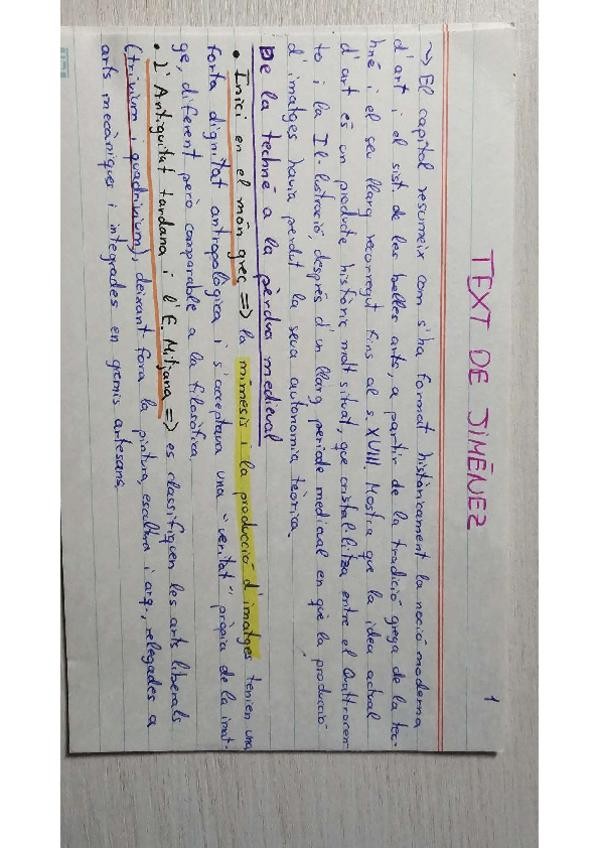 1
TEXT DE JIMÉNEZ
~> El capítol resumeix com s'ha format històricament la noció moderna
d'art i el sist. de les belles arts, a partir de la tradició grega de la tec-
hné i el seu llarg recorregut fins al s. XVIII. Mostra que la idea actual
d'art és un producte històric molt situat, que cristal·litza entre el Quattrocen-
to i la Il·lustració, després d'un llarg període medieval en què la producció
d'imatges havia perdut la seva autonomia teòrica.
De la techné a la pèrdua medieval
• Inici en el món grec => la mímesis i la producció d'imatges tenien una
forta dignitat antropològica i s'acceptava una "veritat" pròpia de la imat-
ge, diferent però comparable a la filosòfica.
• L'Antiguitat tardana i l'E. Mitjana => es classifiquen les arts liberals
(trivium i quadrivium), deixant fora la pintura, escultura i arq., relegades a
arts mecàniques i integrades en gremis artesans.